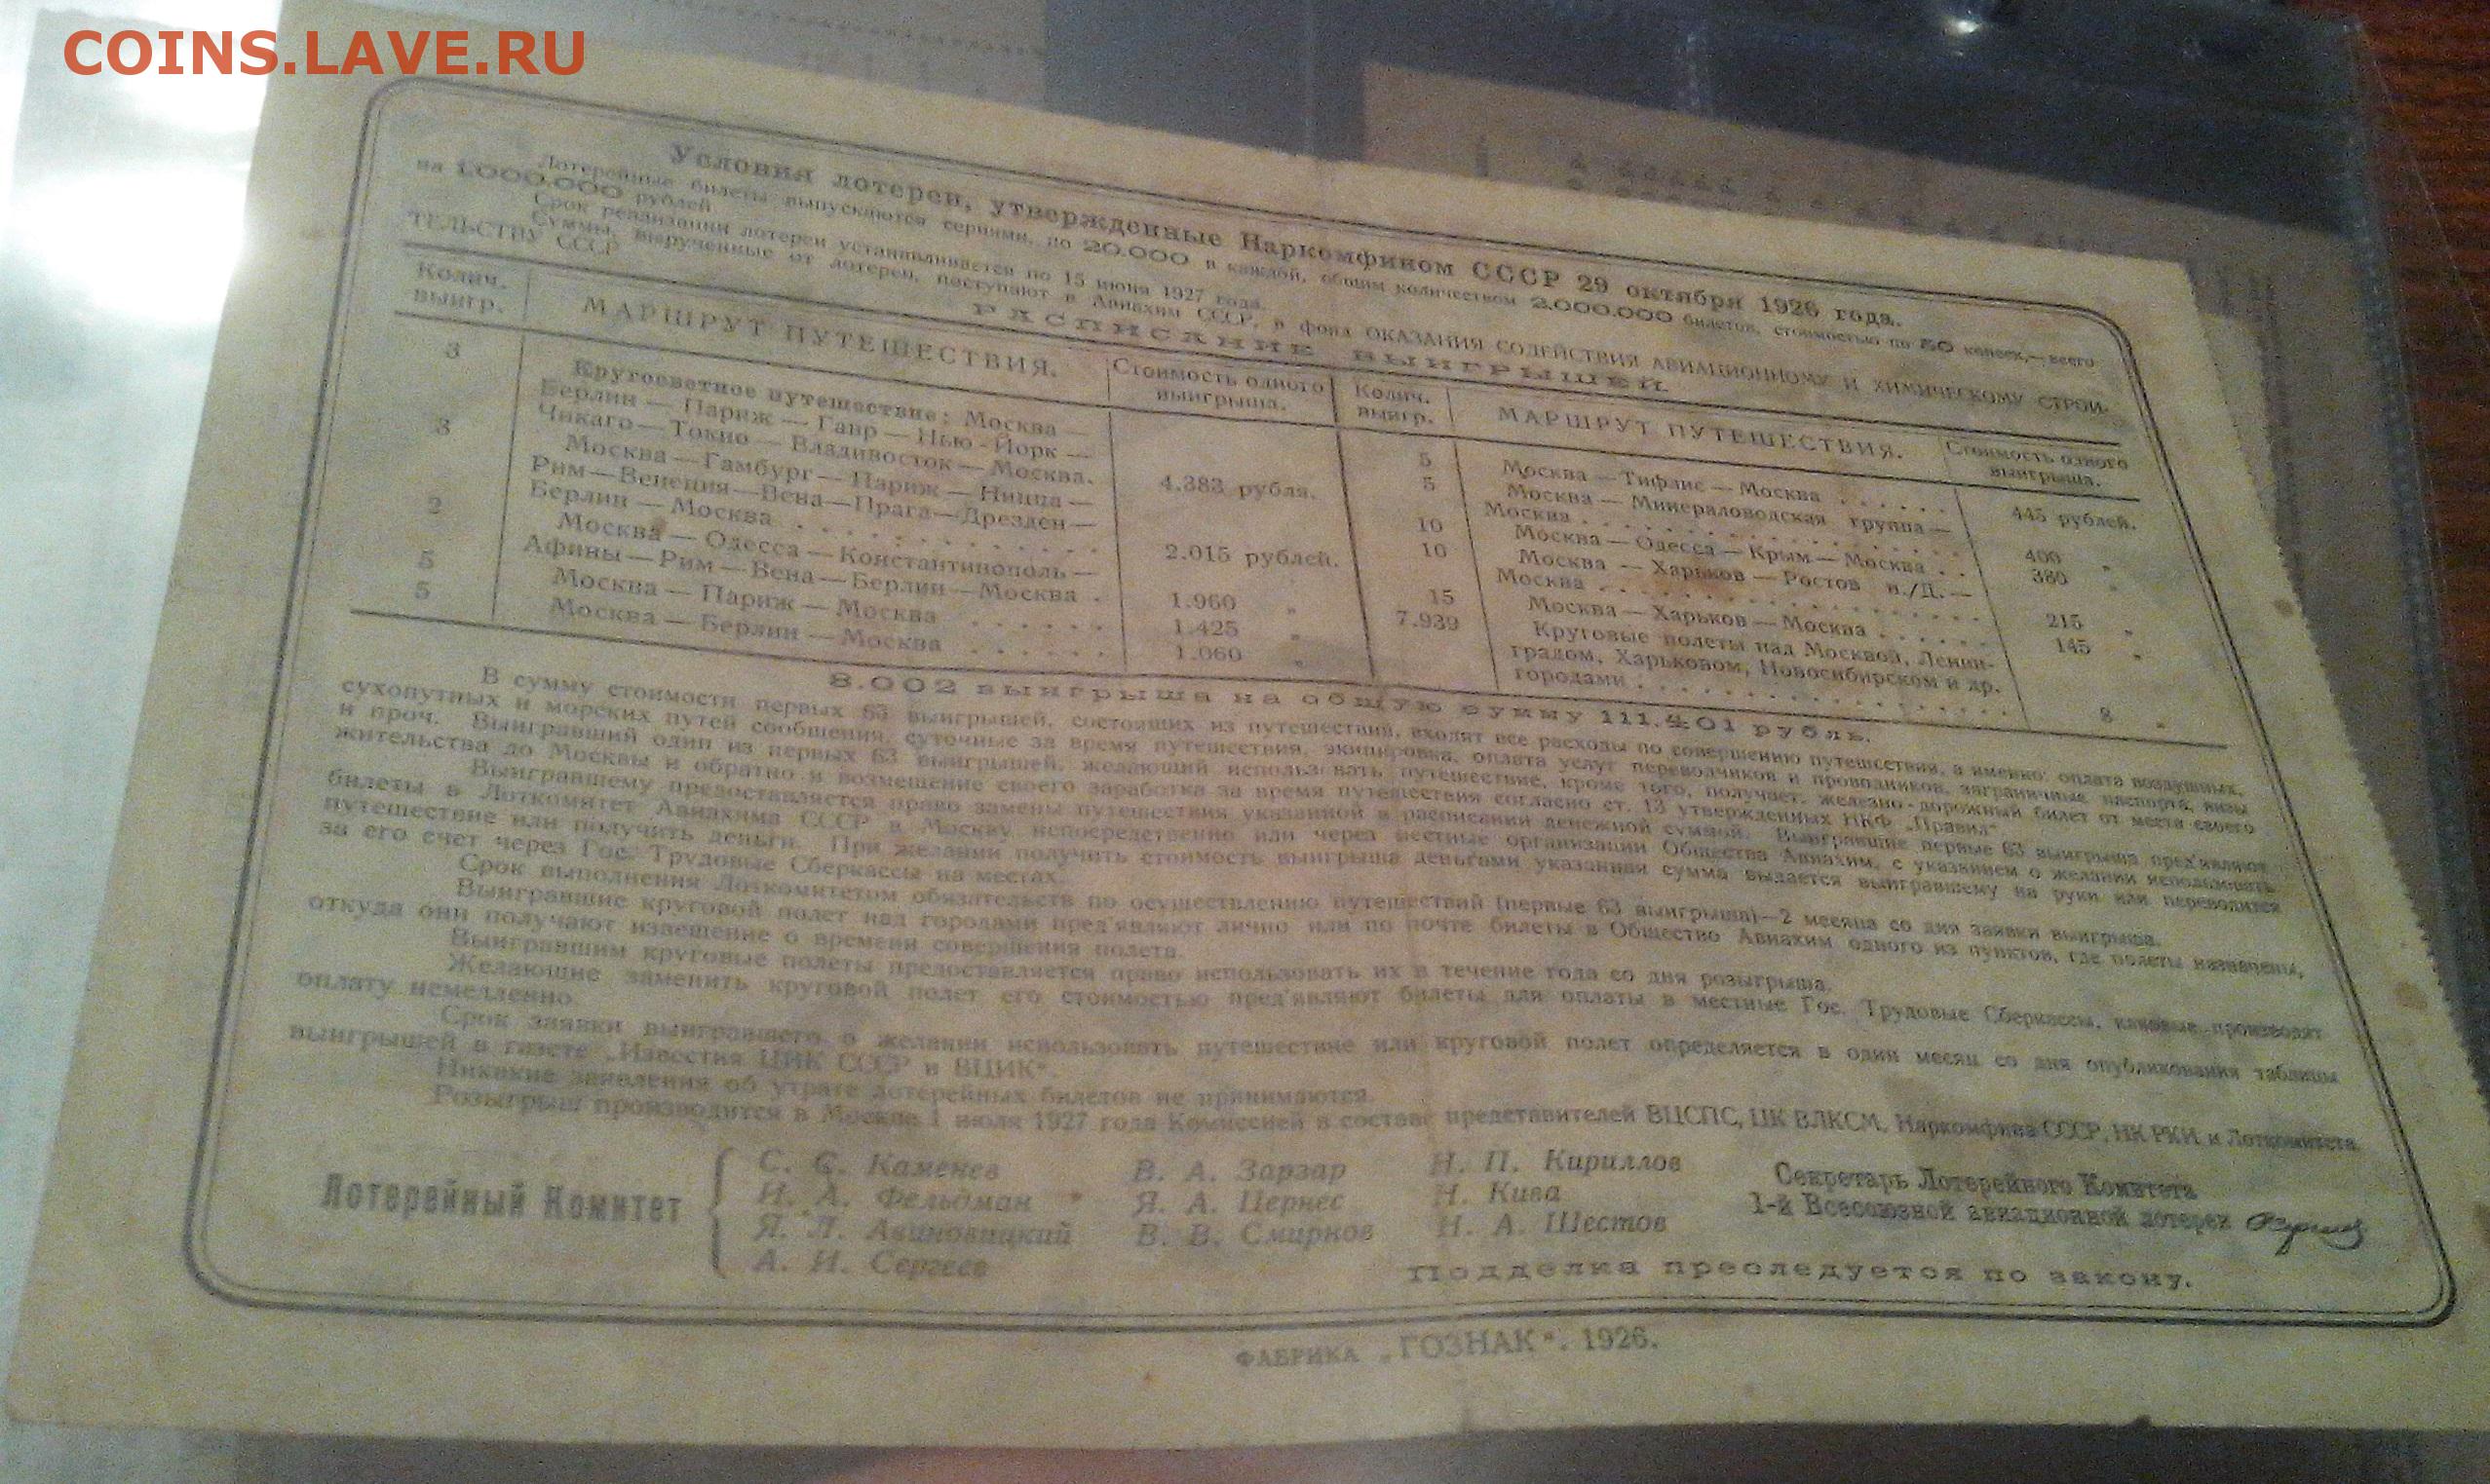 COINS.LAVE.RU
Условия лотереи, утвержденные Наркомфином СССР 29 октября 1926 года.
Лотерейные билеты выпускаются сериями, по 20.000 в каждой, общим количеством 2.000.000 билетов, стоимостью по 50 копеек,—всего
на 1.000.000 рублей.
Срок реализации лотереи устанавливается по 15 июня 1927 года.
Суммы, вырученные от лотереи, поступают в Авиахим СССР, в фонд ОКАЗАНИЯ СОДЕЙСТВИЯ АВИАЦИОННОМУ И ХИМИЧЕСКОМУ СТРОИ-
ТЕЛЬСТВУ СССР
РАСПИСАНИЕ ВЫИГРЫШЕЙ.
Колич. выигр.
МАРШРУТ ПУТЕШЕСТВИЯ.
Стоимость одного выигрыша.
3
Кругосветное путешествие: Москва —
Берлин — Париж — Гавр — Нью-Йорк —
Чикаго — Токио — Владивосток — Москва.
4.383 рубля.
3
Москва — Гамбург — Париж — Ницца —
Рим—Венеция—Вена—Прага—Дрезден—
Берлин — Москва . . . . . . . . . .
2.015 рублей.
2
Москва — Одесса — Константинополь —
Афины — Рим — Вена — Берлин — Москва .
1.960 „
5
Москва — Париж — Москва . . . . . .
1.425 „
5
Москва — Берлин — Москва . . . . . .
1.060 „
Колич. выигр.
МАРШРУТ ПУТЕШЕСТВИЯ.
Стоимость одного выигрыша.
5
Москва — Тифлис — Москва . . . . . .
445 рублей.
5
Москва — Минераловодская группа —
Москва . . . . . . . . . . . . . .
400 „
10
Москва — Одесса — Крым — Москва . .
380 „
10
Москва — Харьков — Ростов н./Д. —
Москва . . . . . . . . . . . . . .
215 „
15
Москва — Харьков — Москва . . . . . .
145 „
7.939
Круговые полеты над Москвой, Ленин-
градом, Харьковом, Новосибирском и др.
городами . . . . . . . . . . . . . .
8 „
8.002 выигрыша на общую сумму 111.401 рубль.
В сумму стоимости первых 63 выигрышей, состоящих из путешествий, входят все расходы по совершению путешествия, а именно: оплата воздушных,
сухопутных и морских путей сообщения, суточные за время путешествия, экипировка, оплата услуг переводчиков и проводников, заграничные паспорта, визы
и проч. Выигравший один из первых 63 выигрышей, желающий использовать путешествие, кроме того, получает: железно-дорожный билет от места своего
жительства до Москвы и обратно и возмещение своего заработка за время путешествия согласно ст. 13 утвержденных НКФ „Правил“.
Выигравшему предоставляется право замены путешествия указанной в расписании денежной суммой. Выигравшие первые 63 выигрыша пред'являют
билеты в Лоткомитет Авиахима СССР в Москву непосредственно или через местные организации Общества Авиахим, с указанием о желании использовать
путешествие или получить деньги. При желании получить стоимость выигрыша деньгами указанная сумма выдается выигравшему на руки или переводится
за его счет через Гос. Трудовые Сберкассы на местах.
Срок выполнения Лоткомитетом обязательств по осуществлению путешествий (первые 63 выигрыша)—2 месяца со дня заявки выигрыша.
Выигравшие круговой полет над городами пред'являют лично или по почте билеты в Общество Авиахим одного из пунктов, где полеты назначены,
откуда они получают извещение о времени совершения полета.
Выигравшим круговые полеты предоставляется право использовать их в течение года со дня розыгрыша.
Желающие заменить круговой полет его стоимостью пред'являют билеты для оплаты в местные Гос. Трудовые Сберкассы, каковые производят
оплату немедленно.
Срок заявки выигравшего о желании использовать путешествие или круговой полет определяется в один месяц со дня опубликования таблицы
выигрышей в газете „Известия ЦИК СССР и ВЦИК“.
Никакие заявления об утрате лотерейных билетов не принимаются.
Розыгрыш производится в Москве 1 июля 1927 года Комиссией в составе представителей ВЦСПС, ЦК ВЛКСМ, Наркомфина СССР, НК РКИ и Лоткомитета.
Лотерейный Комитет
С. С. Каменев
И. А. Фельдман
Я. Л. Авиновицкий
А. И. Сергеев
В. А. Зарзар
Я. А. Цернес
В. В. Смирнов
Н. П. Кириллов
Н. Кива
Н. А. Шестов
Секретарь Лотерейного Комитета
1-й Всесоюзной авиационной лотереи
Подделка преследуется по закону.
ФАБРИКА „ГОЗНАК“. 1926.